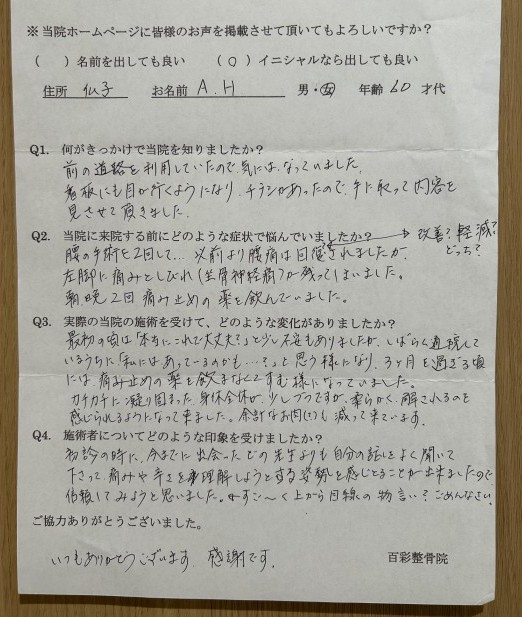 ※当院ホームページに皆様のお声を掲載させて頂いてもよろしいですか？
（　）名前を出しても良い　（○）イニシャルなら出しても良い
住所　仙子　お名前　A.H　男・女　年齢 60 才代
Q1. 何がきっかけで当院を知りましたか？
前の道路を利用していたので、気にはなっていました。
看板にも目が行くようになり、チラシがあったので、手に取って内容を
見させて頂きました。
Q2. 当院に来院する前にどのような症状で悩んでいましたか？
改善？軽減？
どっち？
腰の手術を2回して… 以前より腰痛は されましたが、
左脚に痛みとしびれ(坐骨神経痛)が残ってしまいました。
朝、晩2回痛み止めの薬を飲んでいました。
Q3. 実際の当院の施術を受けて、どのような変化がありましたか？
最初の頃は「本当にこれで大丈夫？」と少し不安もありましたが、しばらく通院して
いるうちに「私にはあって～るのかも…？」と思う様になり、3ヶ月を過ぎる頃
には痛み止めの薬を飲まなくてすむ様になっていました。
カチカチに凝り固まった身体全体が、少しづつですが、柔らかく、解されるのを
感じられるようになって来ました。余計なお肉(?)も減って来ています。
Q4. 施術者についてどのような印象を受けましたか？
初診の時に、今までに出会ったどの先生よりも自分の話をよく聞いて
下さって痛みや辛さを理解しようとする姿勢を感じとることが出来ましたので、
信頼してみようと思いました。 すご～く上から目線の物言い？ごめんなさい
ご協力ありがとうございました。
いつもありがとうございます、感謝です。
百彩整骨院